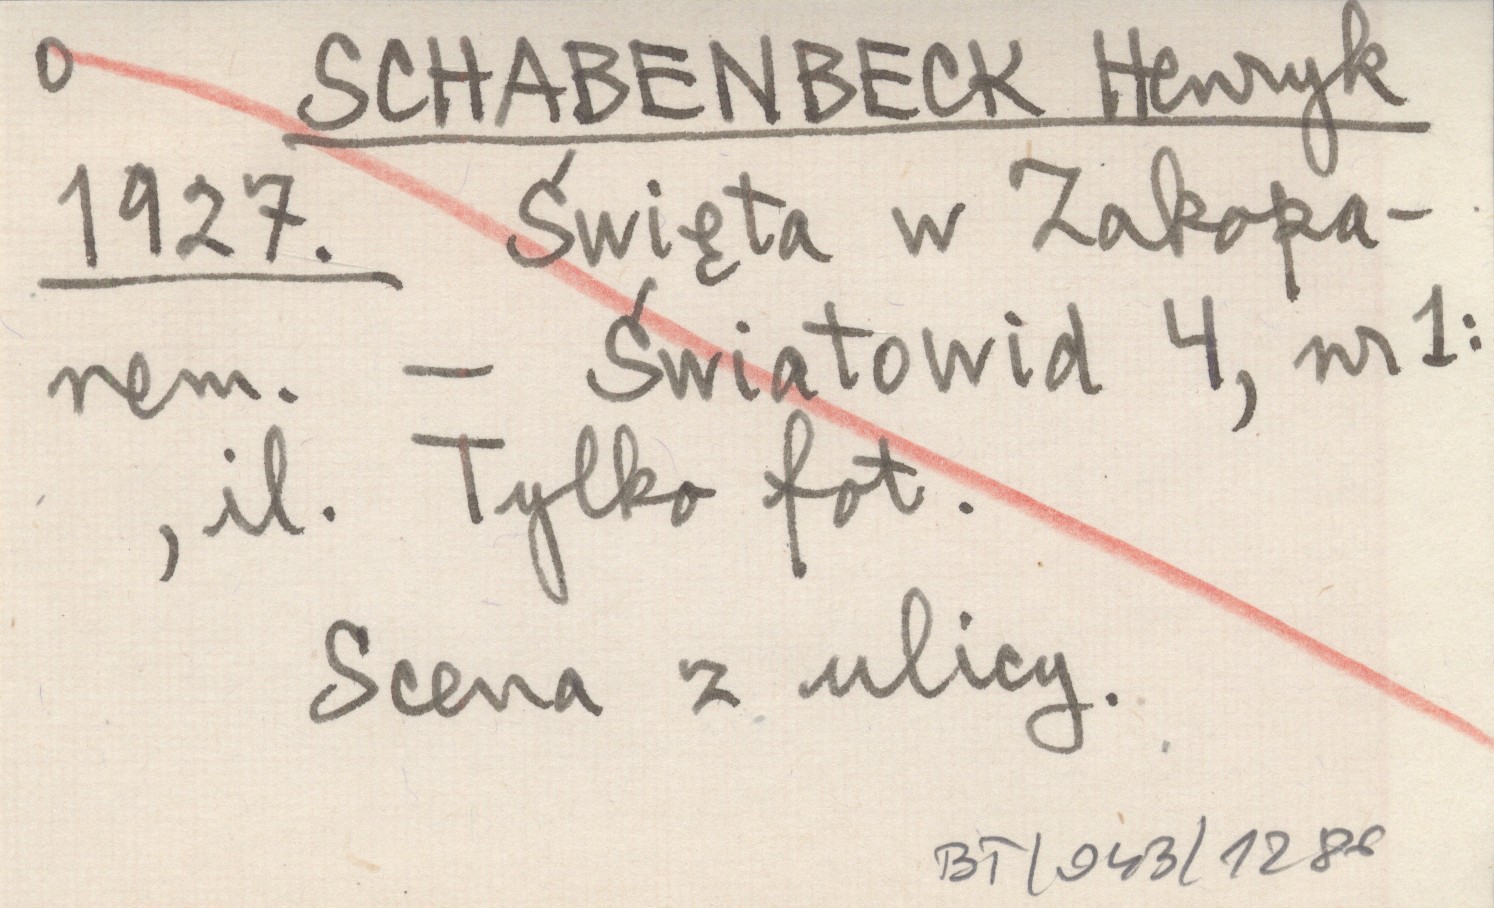 O SCHABENBECK Henryk
1927. Święta w Zakopa-
nem. - Światowid 4, nr 1:
, il. Tylko fot.
Scena z ulicy.
BT/943/1286